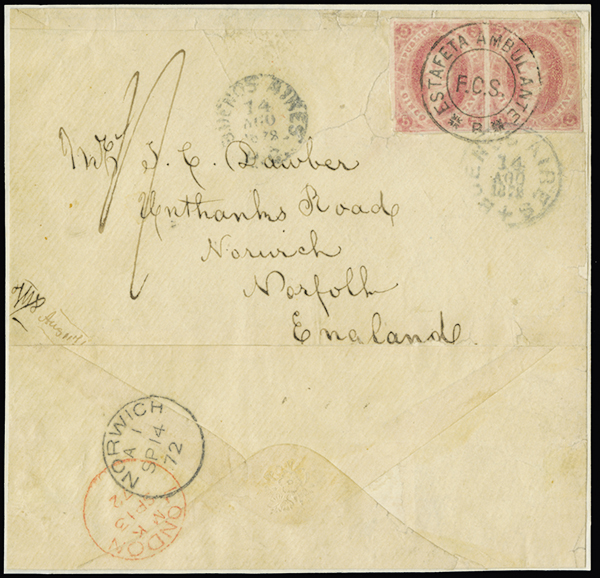 ESTAFETA AMBULANTE
F.C.S.
* B *
BUENOS AIRES
14
AGO
1872
BUENOS AIRES
14
AGO
1872
1/
Mr J. C. Dawber
Unthanks Road
Norwich
Norfolk
England.
NORWICH
A 1
SP 14
72
LONDON
K
SE 13
72